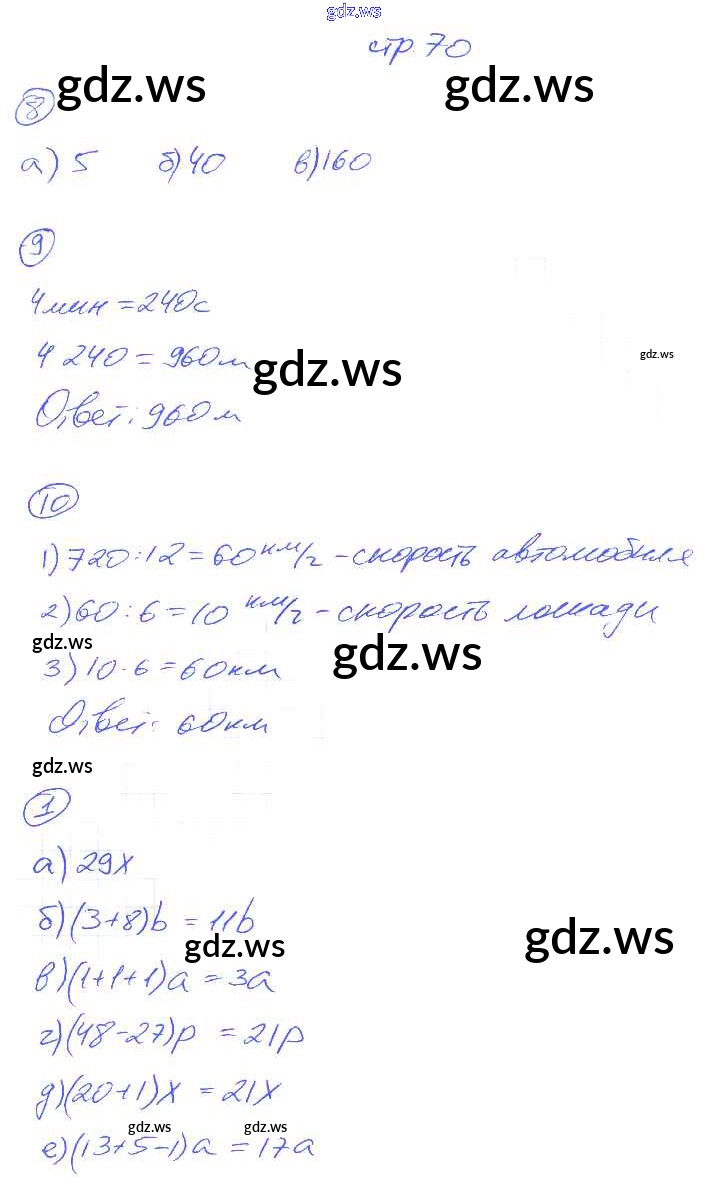 gdz.ws
стр. 70
gdz.ws gdz.ws
8
а) 5 б) 40 в) 160
9
4 мин = 240 с
gdz.ws
4 240 = 960 м
gdz.ws
Ответ: 960 м
10
1) 720 : 12 = 60 км/ч - скорость автомобиля
2) 60 : 6 = 10 км/ч - скорость лошади
gdz.ws gdz.ws
3) 10 · 6 = 60 км
Ответ: 60 км
gdz.ws
1
а) 29x
б) (3+8)b = 11b
gdz.ws gdz.ws
в) (1+1+1)a = 3a
г) (48-27)p = 21p
д) (20+1)x = 21x
gdz.ws gdz.ws
е) (13+5-1)a = 17a